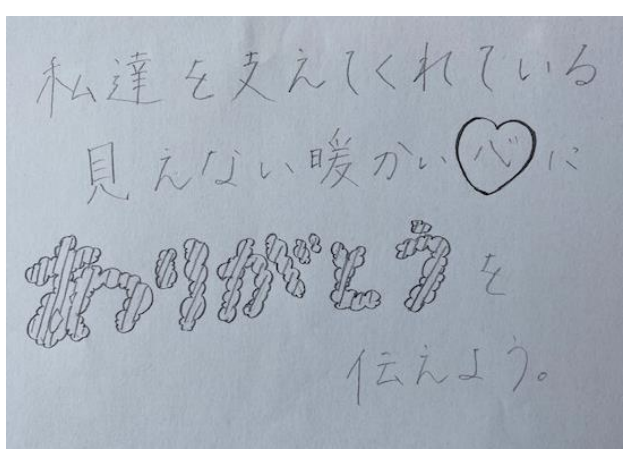 私達を支えてくれている
見えない暖かい心に
ありがとうを
伝えよう。